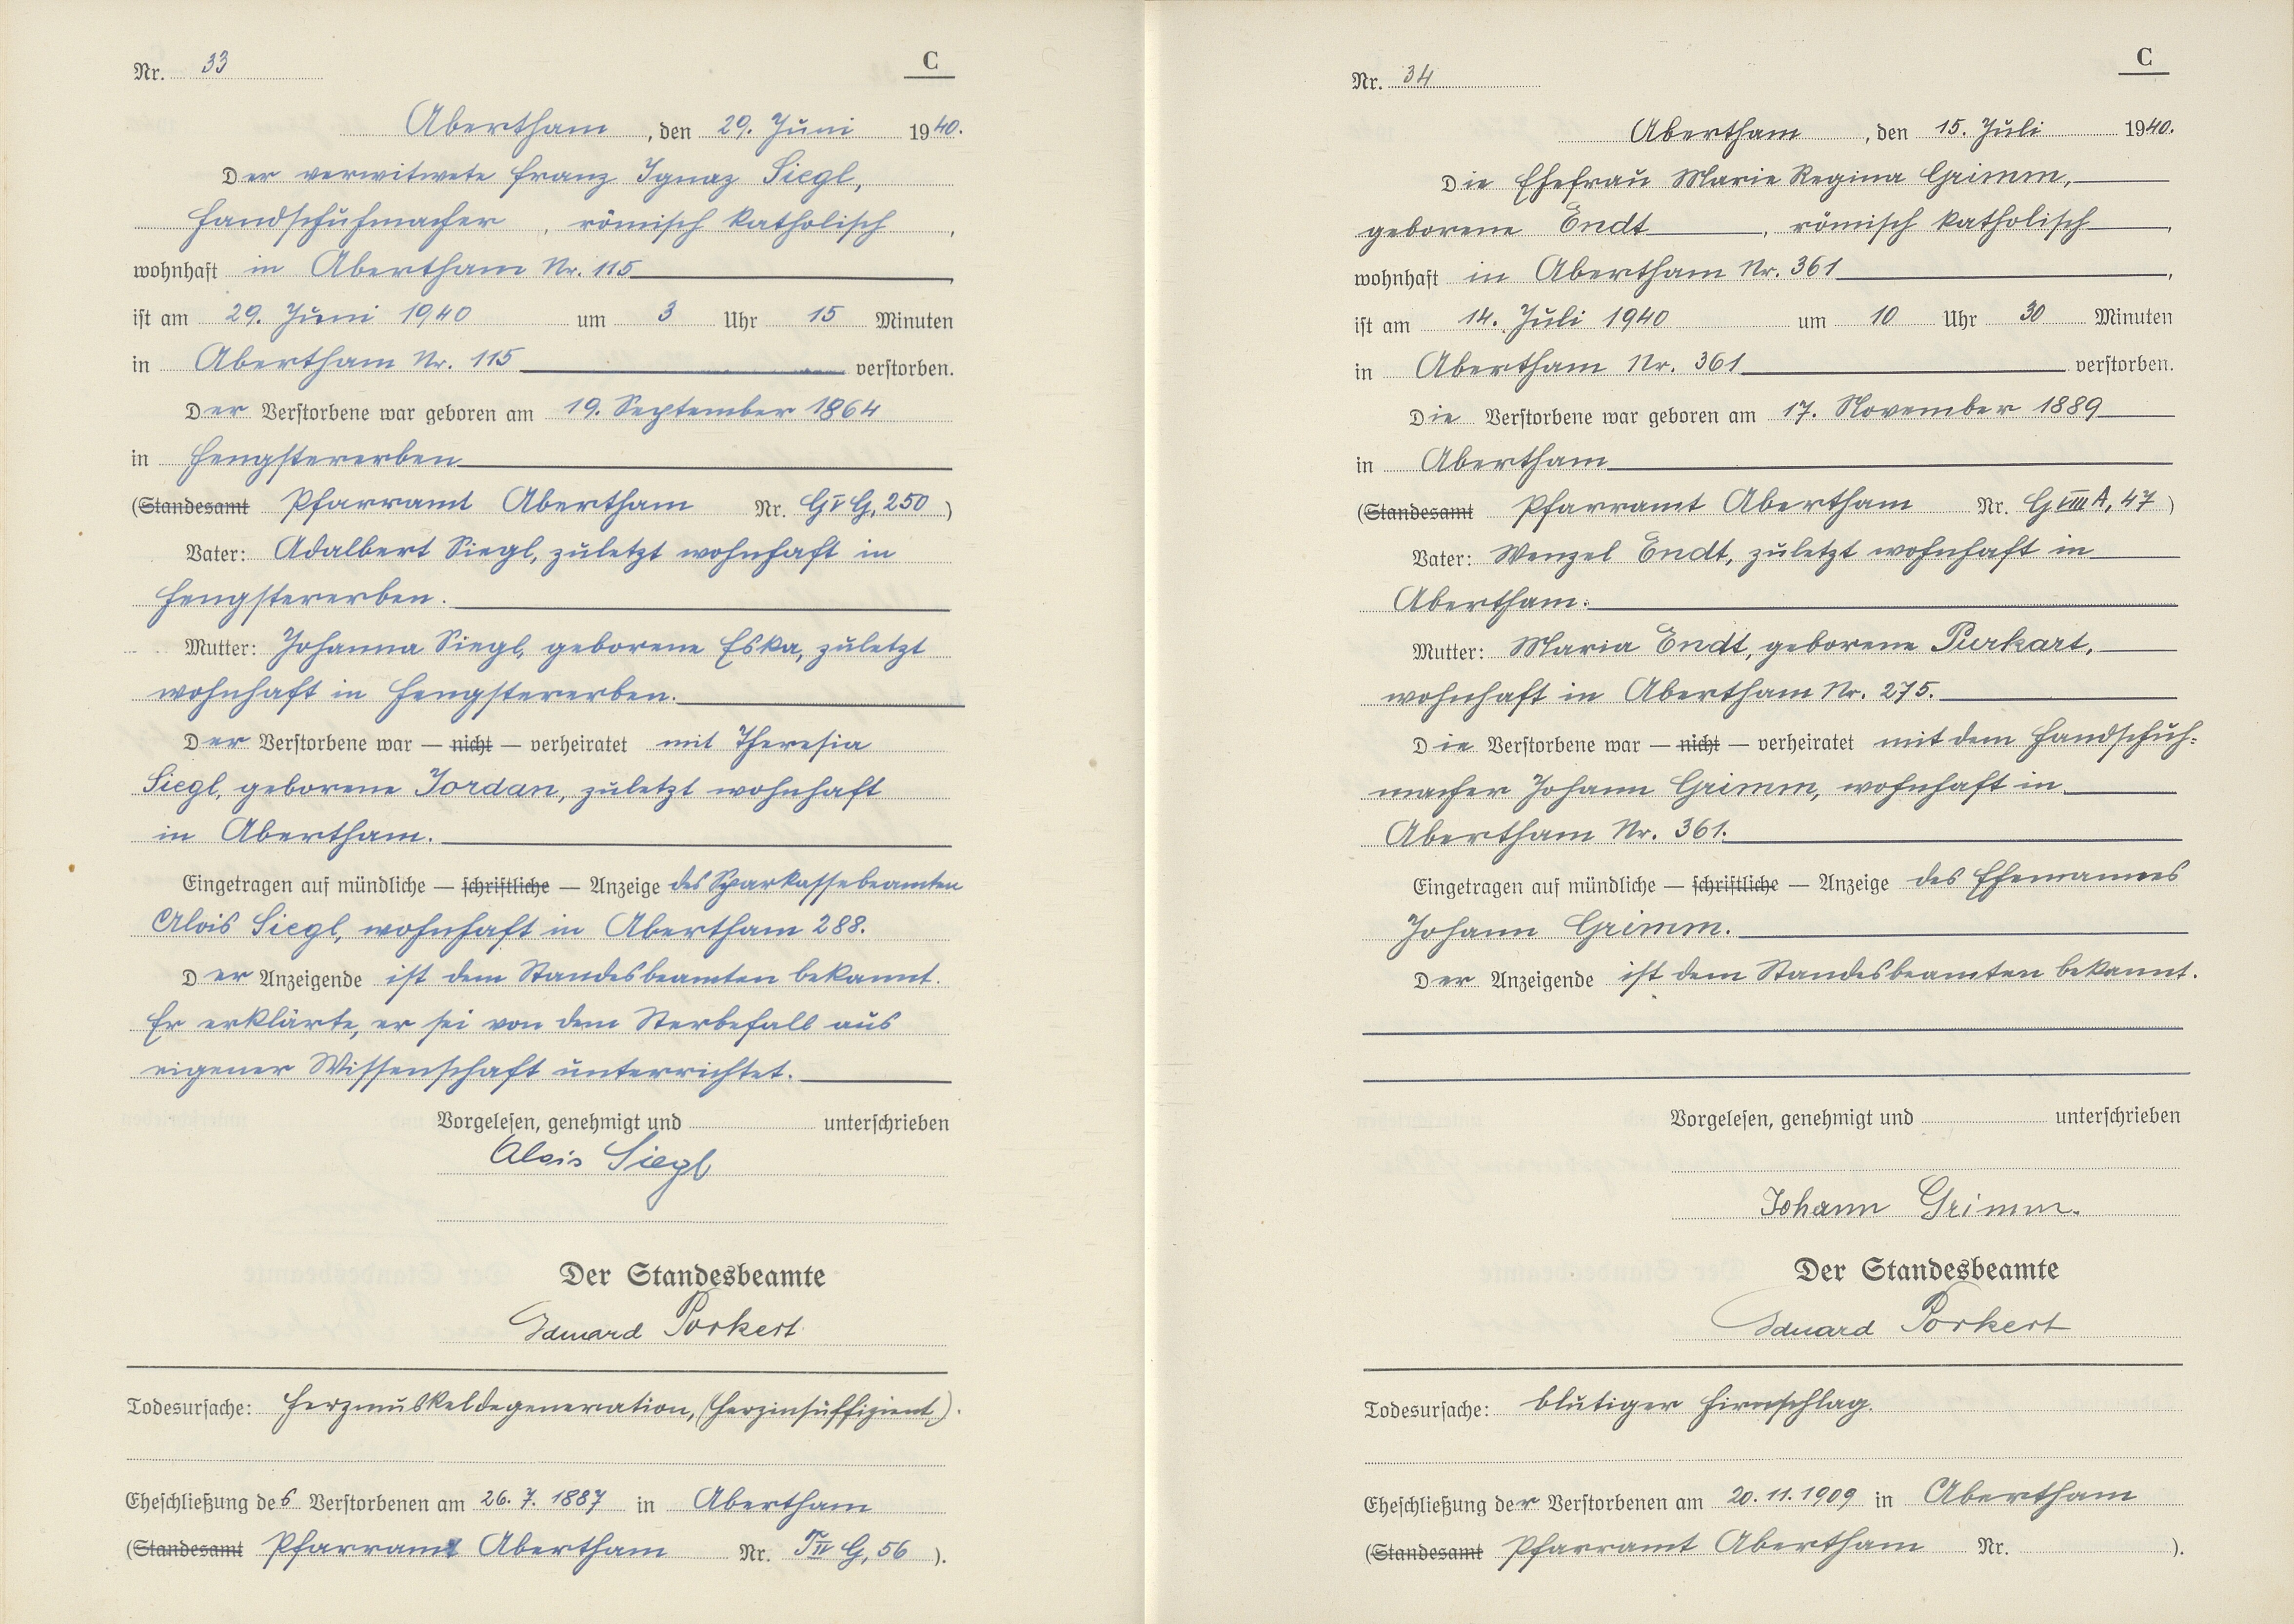 Nr. 33
C
Abertham, den 29. Juni 1940.
Der verwitwete Franz Ignaz Siegl,
Handschuhmacher, römisch katholisch,
wohnhaft in Abertham Nr. 115,
ist am 29. Juni 1940 um 3 Uhr 15 Minuten
in Abertham Nr. 115 verstorben.
Der Verstorbene war geboren am 19. September 1864
in Hengstererben
(Standesamt Pfarramt Abertham Nr. G V G, 250)
Vater: Adalbert Siegl, zuletzt wohnhaft in
Hengstererben.
Mutter: Johanna Siegl, geborene Eska, zuletzt
wohnhaft in Hengstererben.
Der Verstorbene war — nicht — verheiratet mit Theresia
Siegl, geborene Jordan, zuletzt wohnhaft
in Abertham.
Eingetragen auf mündliche — schriftliche — Anzeige des Sparkassebeamten
Alois Siegl, wohnhaft in Abertham 288.
Der Anzeigende ist dem Standesbeamten bekannt.
Er erklärte, er sei von dem Sterbefall aus
eigener Wissenschaft unterrichtet.
Vorgelesen, genehmigt und unterschrieben
Alois Siegl
Der Standesbeamte
Eduard Porkert
Todesursache: Herzmuskeldegeneration, (Herzinsuffizient).
Eheschließung des Verstorbenen am 26. 7. 1887 in Abertham
(Standesamt Pfarramt Abertham Nr. T IV G, 56).
Nr. 34
C
Abertham, den 15. Juli 1940.
Die Ehefrau Marie Regina Grimm,
geborene Endt, römisch katholisch,
wohnhaft in Abertham Nr. 361,
ist am 14. Juli 1940 um 10 Uhr 30 Minuten
in Abertham Nr. 361 verstorben.
Die Verstorbene war geboren am 17. November 1889
in Abertham
(Standesamt Pfarramt Abertham Nr. G VIII A, 47)
Vater: Wenzel Endt, zuletzt wohnhaft in
Abertham.
Mutter: Maria Endt, geborene Purkart,
wohnhaft in Abertham Nr. 275.
Die Verstorbene war — nicht — verheiratet mit dem Handschuh-
macher Johann Grimm, wohnhaft in
Abertham Nr. 361.
Eingetragen auf mündliche — schriftliche — Anzeige des Ehemannes
Johann Grimm.
Der Anzeigende ist dem Standesbeamten bekannt.
Vorgelesen, genehmigt und unterschrieben
Johann Grimm.
Der Standesbeamte
Eduard Porkert
Todesursache: blutiger Hirnschlag.
Eheschließung der Verstorbenen am 20. 11. 1909 in Abertham
(Standesamt Pfarramt Abertham Nr. ).